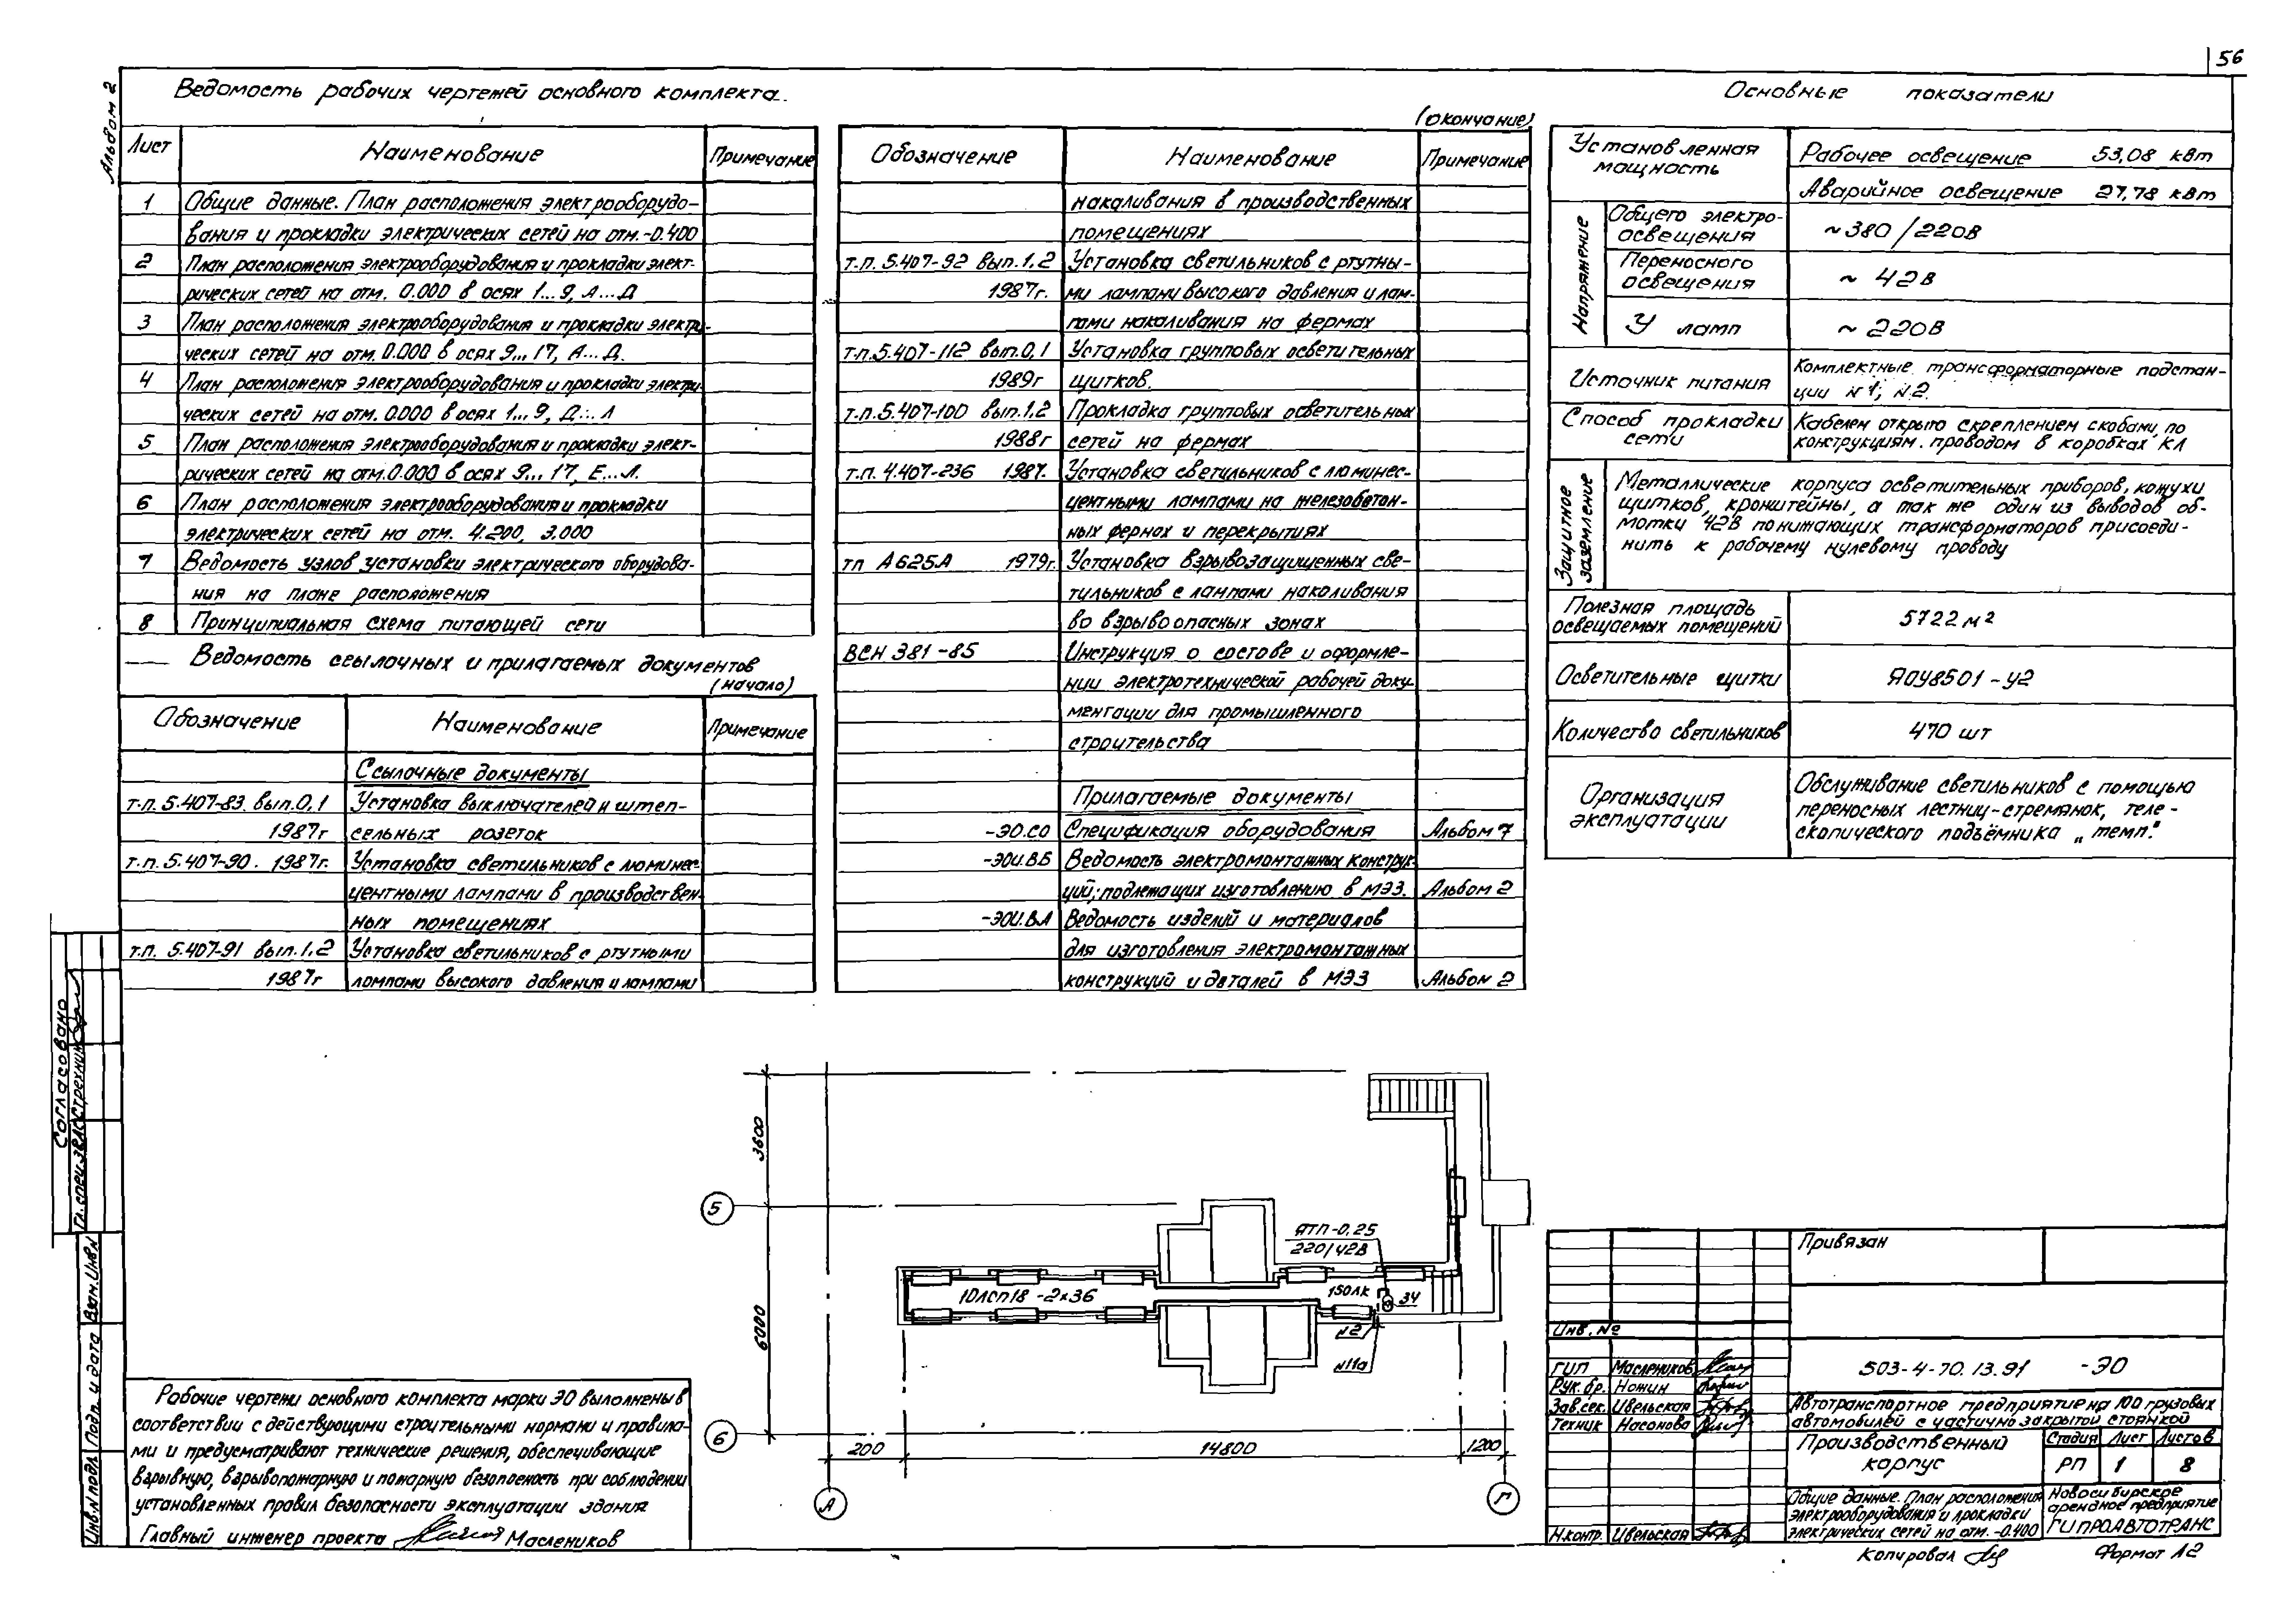 56
Альбом 2
Ведомость рабочих чертежей основного комплекта
Лист Наименование Примечание
1 Общие данные. План расположения электрооборудо-
вания и прокладки электрических сетей на отм.-0.400
2 План расположения электрооборудования и прокладки элект-
рических сетей на отм. 0.000 в осях 1...9, А...Д
3 План расположения электрооборудования и прокладки электри-
ческих сетей на отм. 0.000 в осях 9...17, А...Д.
4 План расположения электрооборудования и прокладки электри-
ческих сетей на отм. 0.000 в осях 1...9, Д...Л
5 План расположения электрооборудования и прокладки элект-
рических сетей на отм. 0.000 в осях 9...17, Е...Л.
6 План расположения электрооборудования и прокладки
электрических сетей на отм. 4.200, 3.000
7 Ведомость узлов установки электрического оборудова-
ния на плане расположения
8 Принципиальная схема питающей сети
Ведомость ссылочных и прилагаемых документов
(начало)
Обозначение Наименование Примечание
Ссылочные документы
т.п. 5.407-83. вып.0,1 Установка выключателей и штеп-
1987г сельных розеток
т.п. 5.407-90. 1987г. Установка светильников с люминес-
центными лампами в производствен-
ных помещениях
т.п. 5.407-91 вып.1,2 Установка светильников с ртутными
1987г лампами высокого давления и лампами
(окончание)
Обозначение Наименование Примечание
накаливания в производственных
помещениях
т.п. 5.407-92 вып.1,2 Установка светильников с ртутны-
1987г. ми лампами высокого давления и лам-
пами накаливания на фермах
т.п.5.407-112 вып.0,1 Установка групповых осветительных
1989г щитков.
т.п.5.407-100 вып.1,2 Прокладка групповых осветительных
1988г сетей на фермах
т.п. 4.407-236 1987. Установка светильников с люминес-
центными лампами на железобетон-
ных фермах и перекрытиях
тп А625А 1979г. Установка взрывозащищенных све-
тильников с лампами накаливания
во взрывоопасных зонах
ВСН 381-85 Инструкция о составе и оформле-
нии электротехнической рабочей доку-
ментации для промышленного
строительства
Прилагаемые документы
-ЭО.СО Спецификация оборудования Альбом 7
-ЭОИ.ВБ Ведомость электромонтажных конструк-
ций, подлежащих изготовлению в МЭЗ. Альбом 2
-ЭОИ.ВА Ведомость изделий и материалов
для изготовления электромонтажных
конструкций и деталей в МЭЗ Альбом 2
Основные показатели
Установленная мощность Рабочее освещение 53,08 кВт
Аварийное освещение 27,78 кВт
Напряжение
Общего электро-
освещения ~380/220В
Переносного
освещения ~ 42В
У ламп ~ 220В
Источник питания Комплектные трансформаторные подстан-
ции N1; N2.
Способ прокладки Кабелем открыто с креплением скобами, по
сети конструкциям. проводом в коробках КЛ
Защитное заземление
Металлические корпуса осветительных приборов, кожухи
щитков, кронштейны, а так же один из выводов об-
мотки 42В понижающих трансформаторов присоеди-
нить к рабочему нулевому проводу
Полезная площадь
освещаемых помещений 5722 м²
Осветительные щитки ЯОУ8501-У2
Количество светильников 470 шт
Организация
эксплуатации
Обслуживание светильников с помощью
переносных лестниц-стремянок, теле-
скопического подъёмника „темп."
3600
6000
5
6
ЯТП-0,25
220/42В
10ЛСП18-2х36
150лк
34
N2
N11а
200 14800 1200
А Г
Рабочие чертежи основного комплекта марки ЭО выполнены в
соответствии с действующими строительными нормами и правила-
ми и предусматривают технические решения, обеспечивающие
взрывную, взрывопожарную и пожарную безопасность при соблюдении
установленных правил безопасности эксплуатации здания
Главный инженер проекта Маслеников
Согласовано
Гл. спец.
Взам. Инв.N
Подп. и дата
Инв.N подл.
Привязан
Инв. №
ГИП Маслеников
Рук. бр. Ножин
Зав. сек. Цвельская
Техник Насонова
Н.контр. Цвельская
503-4-70.13.91 -ЭО
Автотранспортное предприятие на 100 грузовых
автомобилей с частично закрытой стоянкой
Производственный
корпус
Стадия Лист Листов
РП 1 8
Общие данные. План расположения
электрооборудования и прокладки
электрических сетей на отм. -0.400
Новосибирское
арендное предприятие
ГИПРОАВТОТРАНС
Копировал
Формат А2